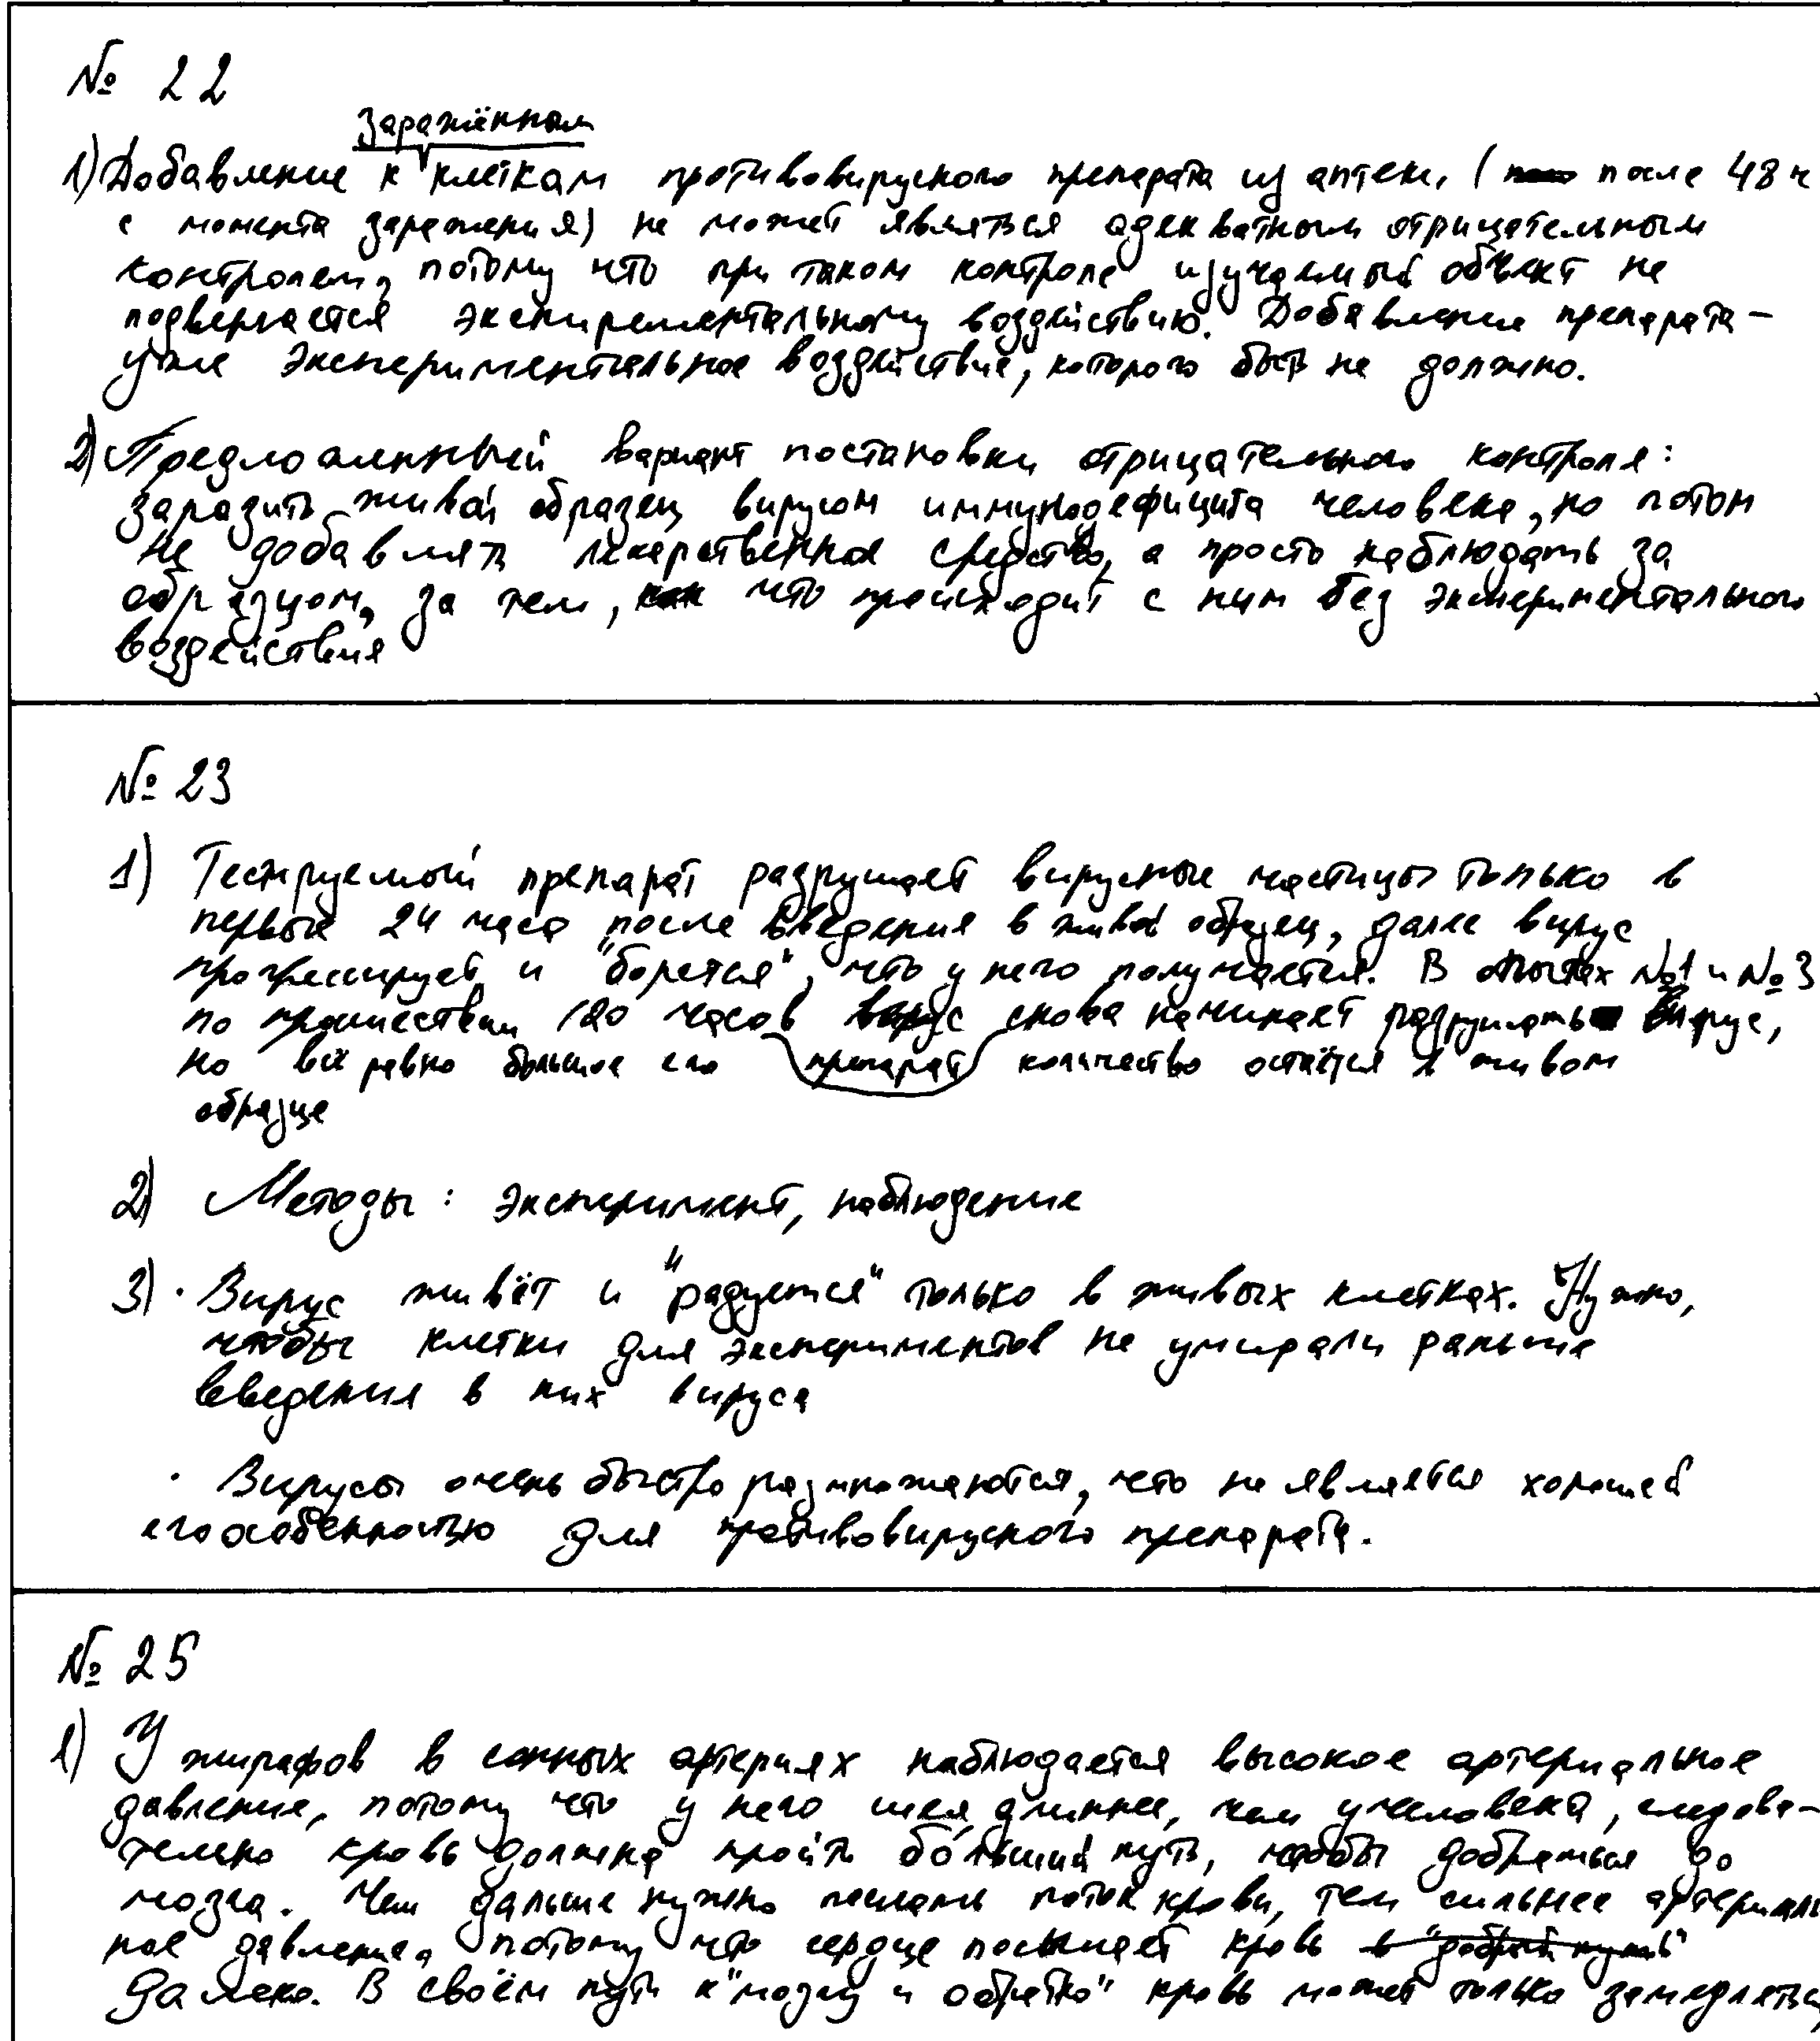 № 22
заражённым
1) Добавление к клеткам противовирусного препарата из аптеки (после 48 ч
с момента заражения) не может являться адекватным отрицательным
контролем, потому что при таком контроле изучаемый объект не
подвергается экспирементальному воздействию. Добавление препарата –
уже экспериментальное воздействие, которого быть не должно.
2) Предложенный вариант постановки отрицательного контроля:
заразить живой образец вирусом иммунодефицита человека, но потом
не добавлять лекарственное средство, а просто наблюдать за
образцом, за тем, что происходит с ним без экспериментального
воздействия
№ 23
1) Тестируемый препарат разрушает вирусные частицы только в
первые 24 часа после введения в живой образец, далее вирус
прогрессирует и "борется", что у него получается. В опытах №1 и №3
по прошествии 120 часов препарат снова начинает разрушать вирус,
но всё равно большое его количество остаётся в живом
образце
2) Методы: эксперимент, наблюдение
3) · Вирус живёт и "радуется" только в живых клетках. Нужно,
чтобы клетки для экспериментов не умирали раньше
введения в них вируса
· Вирусы очень быстро размножаются, что не является хорошей
его особенностью для противовирусного препарата.
№ 25
1) У жирафов в сонных артериях наблюдается высокое артериальное
давление, потому что у него шея длиннее, чем у человека, следова-
тельно кровь должна пройти бо́льший путь, чтобы добраться до
мозга. Чем дальше нужно послать поток крови, тем сильнее артериаль
ное давление, потому что сердце посылает кровь
далеко. В своём пути к "мозгу и обратно" кровь может только замедляться,